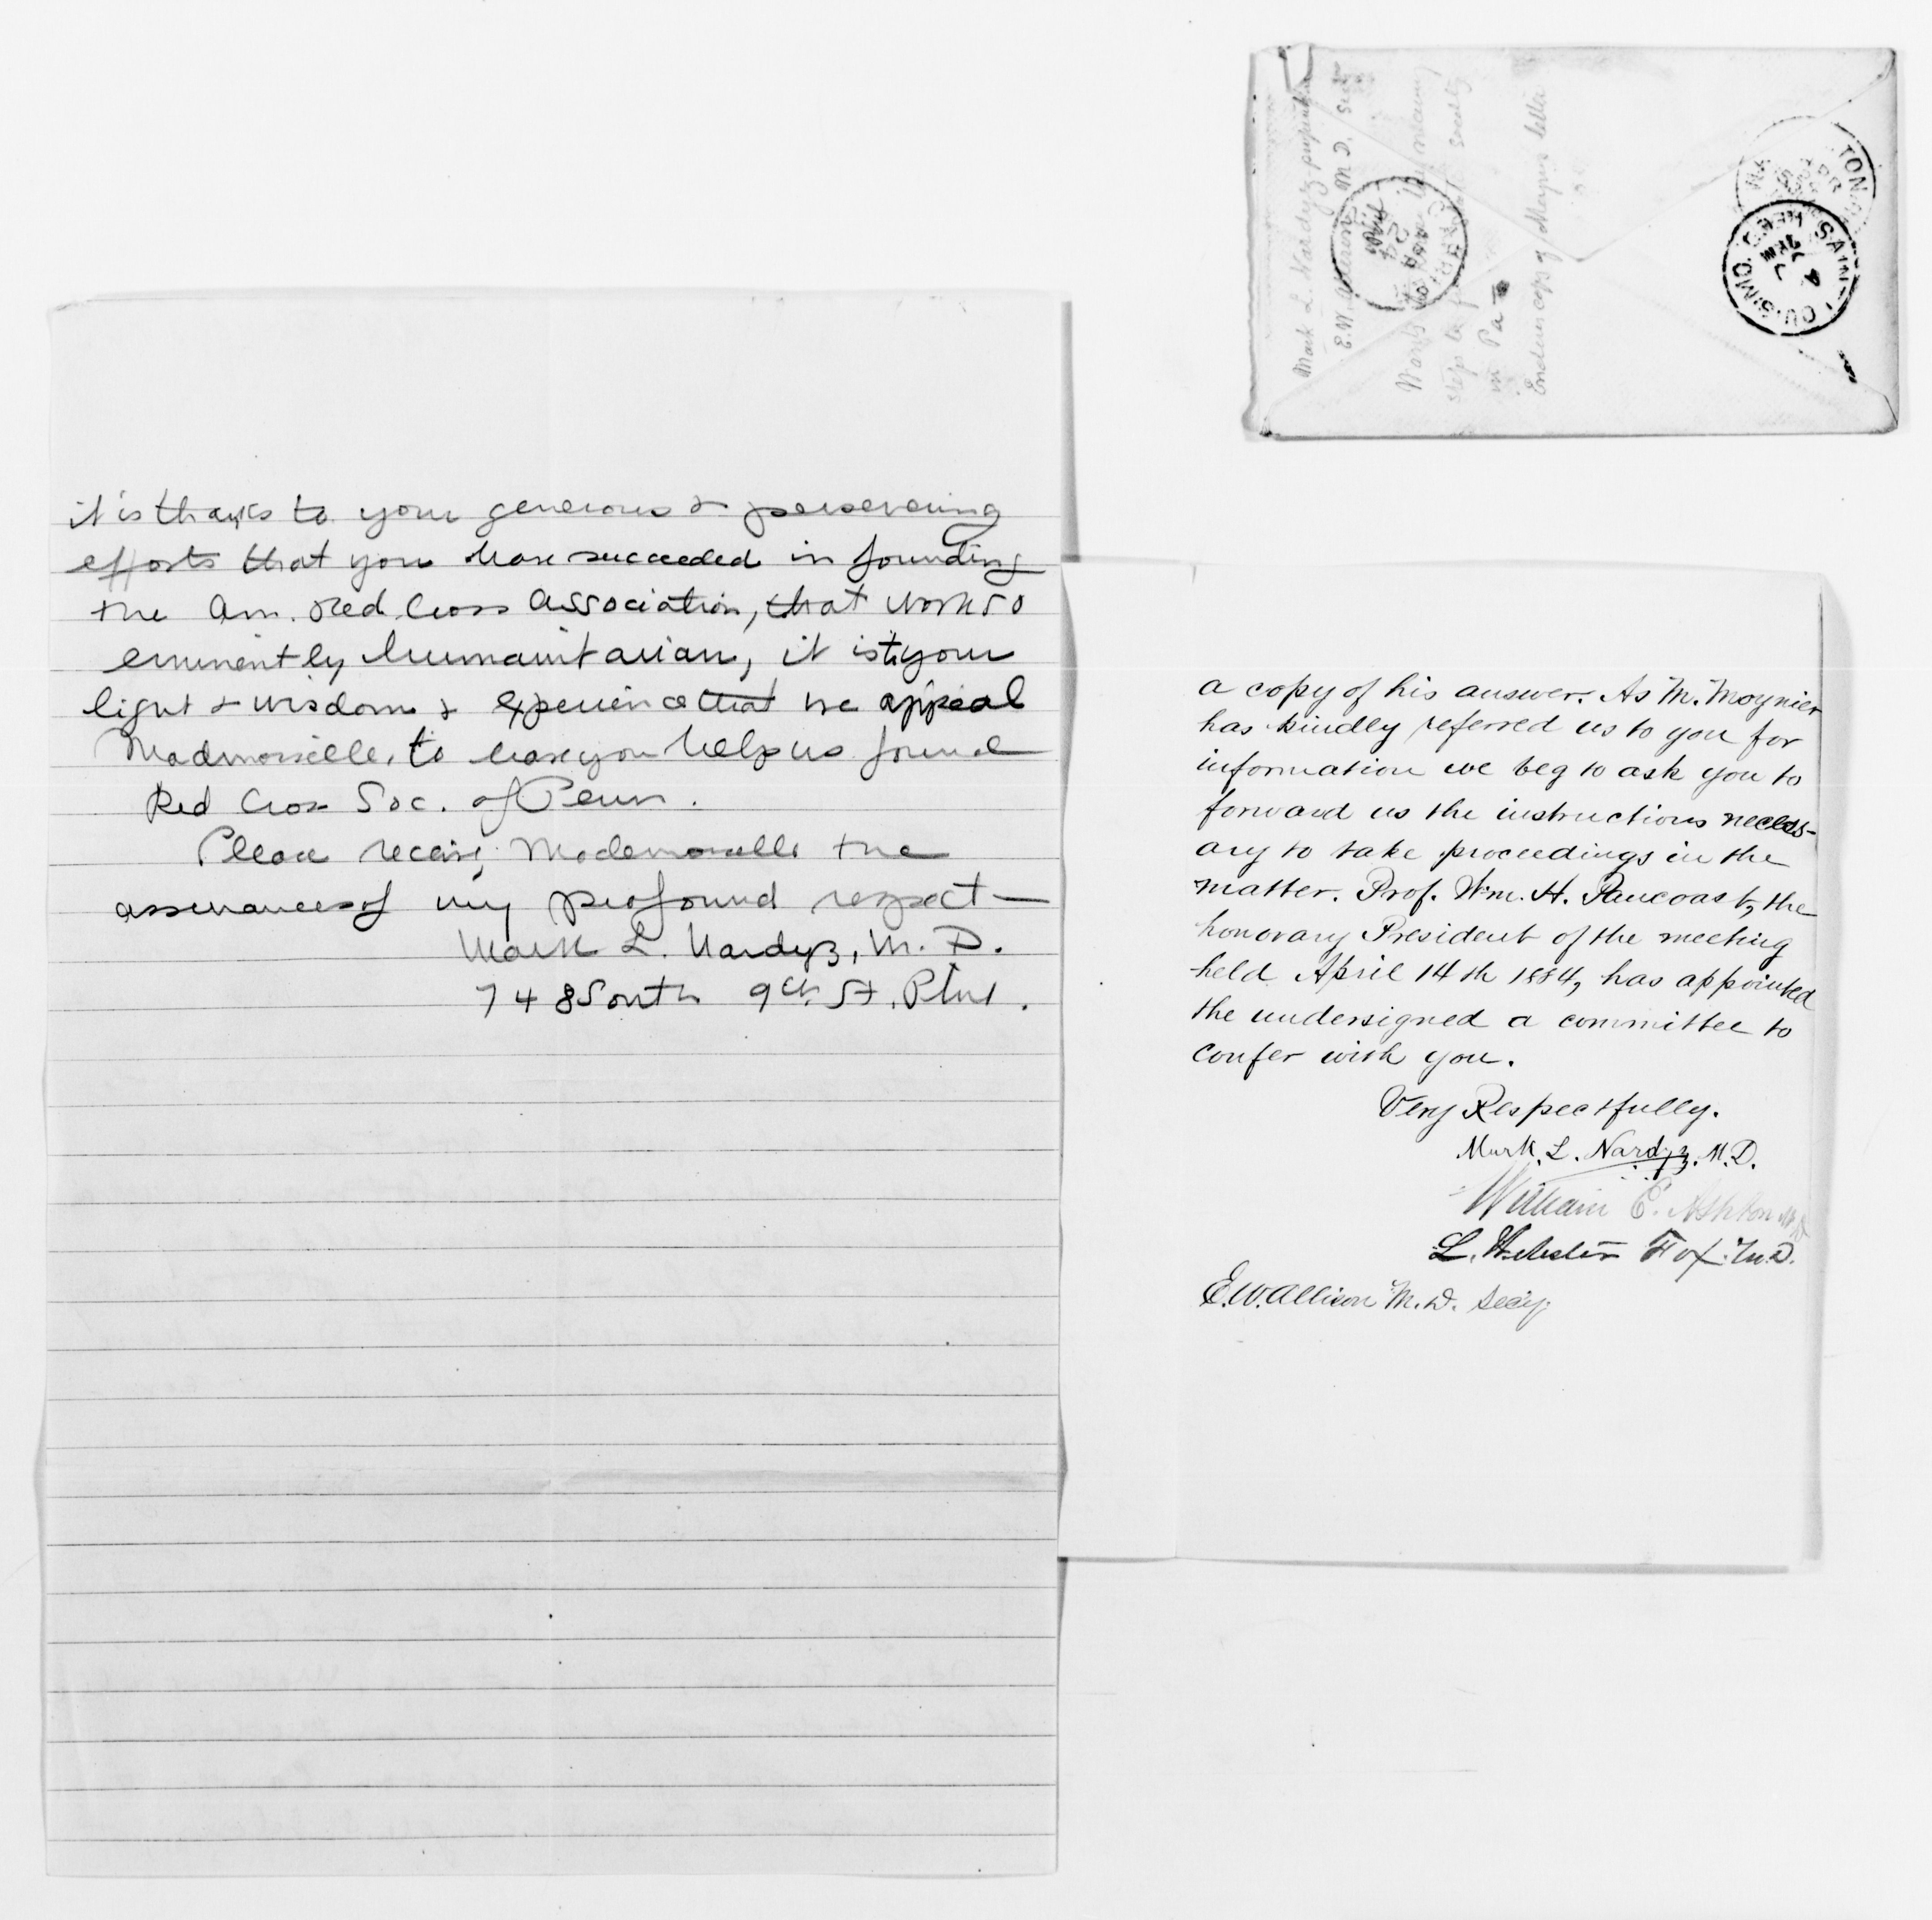 it is thanks to your generous & persevering
efforts that you have succeeded in founding
the Am. Red Cross Association, that work so
eminently humanitarian, it is to your
light & wisdom & experience that we appeal
Mademoiselle, to have you help us found
Red Cross Soc. of Penn.
Please receive Mademoiselle the
assurances of my profound respect—
Mark L. Nardyz, M.D.
748 South 9th St. Phil.
Mark L. Nardyz
E.W. Allison M.D. Sec'y
steps to
in Pa
Encloses copy of Moynier letter
SAINT LOUIS, MO.
a copy of his answer. As M. Moynier
has kindly referred us to you for
information we beg to ask you to
forward us the instructions necess-
ary to take proceedings in the
matter. Prof. Wm. H. Pancoast, the
honorary President of the meeting
held April 14th 1884, has appointed
the undersigned a committee to
confer with you.
Very Respectfully.
Mark. L. Nardyz. M.D.
William E. Ashton M.D.
L. Webster Fox. M.D.
E.W. Allison M.D. Sec'y.